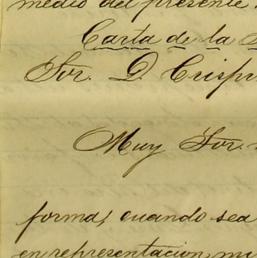 medio del presente
Carta de la
Sor. D. Crisp
Muy Sor.
forma, cuando sea
en representacion mi